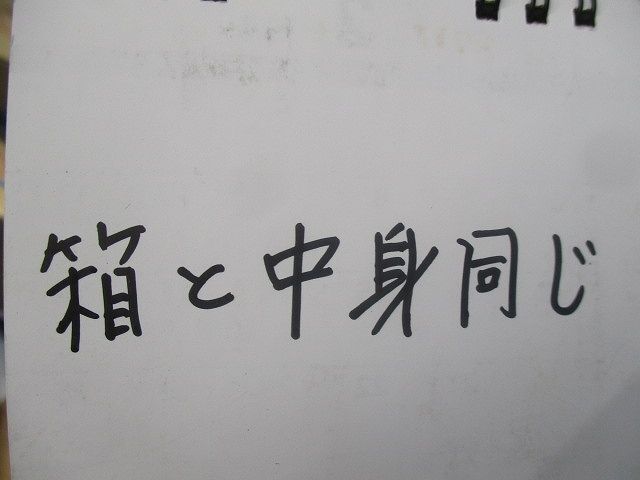 箱と中身同じ